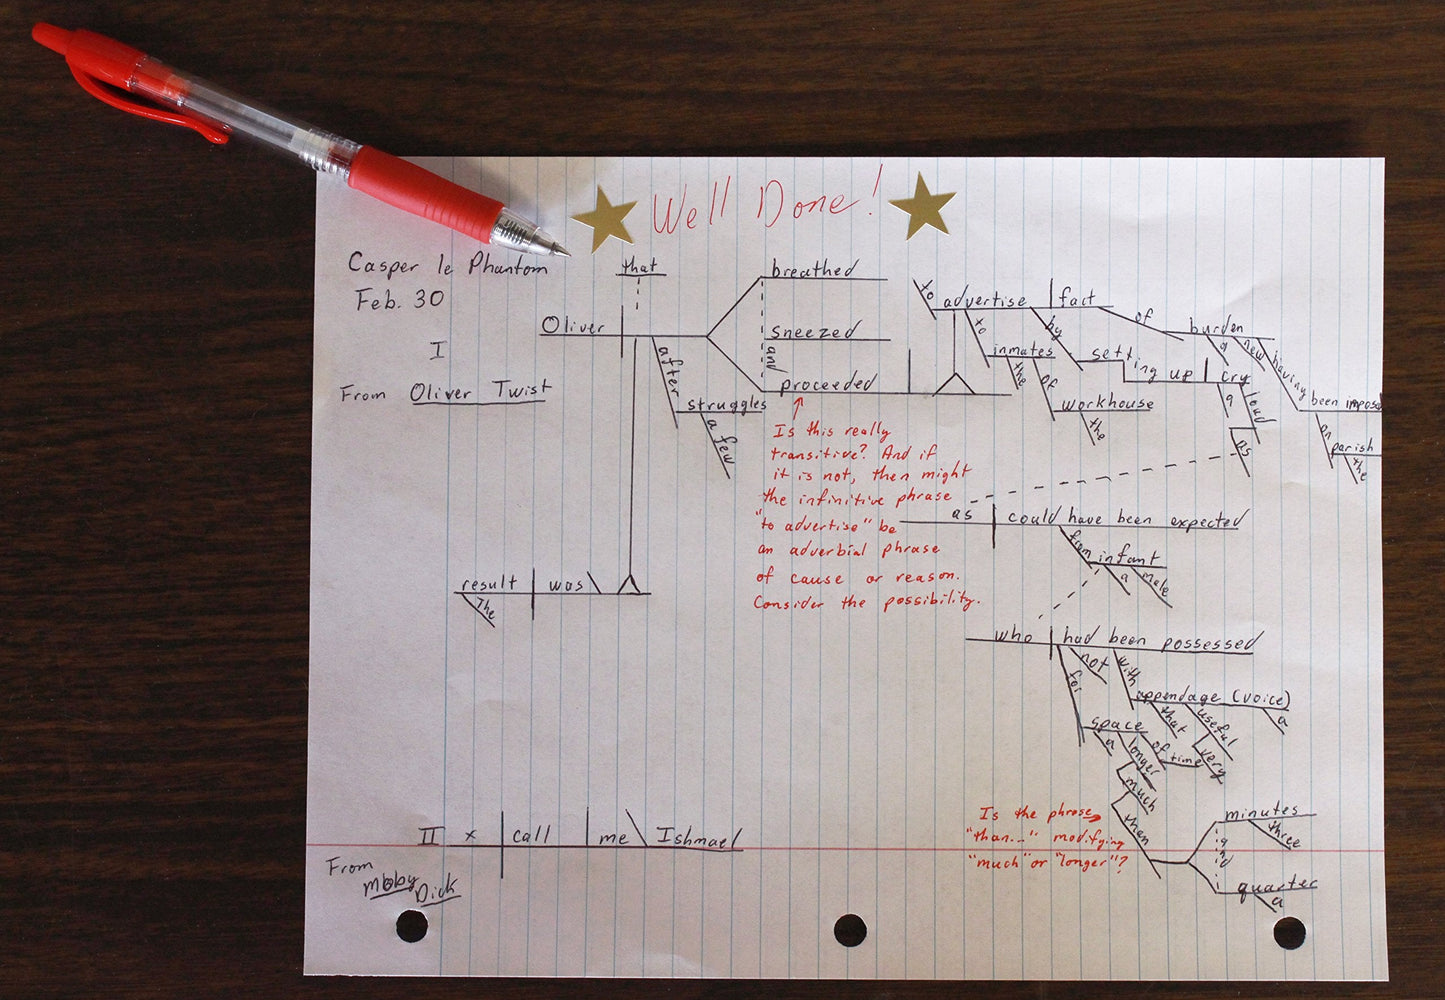 Well Done!
Casper le Phantom
Feb. 30
I
From Oliver Twist
that
Oliver
breathed
sneezed
and
proceeded
after
struggles
a few
to
advertise
fact
of
burden
a
new
having
been impos
on
parish
the
to
inmates
the
of
workhouse
the
by
setting up
cry
a
loud
as
as
could have been expected
from
infant
a
male
who
had been possessed
not
for
with
appendage (voice)
that
useful
very
a
space
a
longer
of
time
much
than
minutes
three
and
quarter
a
result
was
The
Is this really
transitive? And if
it is not, then might
the infinitive phrase
"to advertise" be
an adverbial phrase
of cause or reason.
Consider the possibility.
Is the phrase
"than..." modifying
"much" or "longer"?
II
x
call
me
Ishmael
From
Moby
Dick